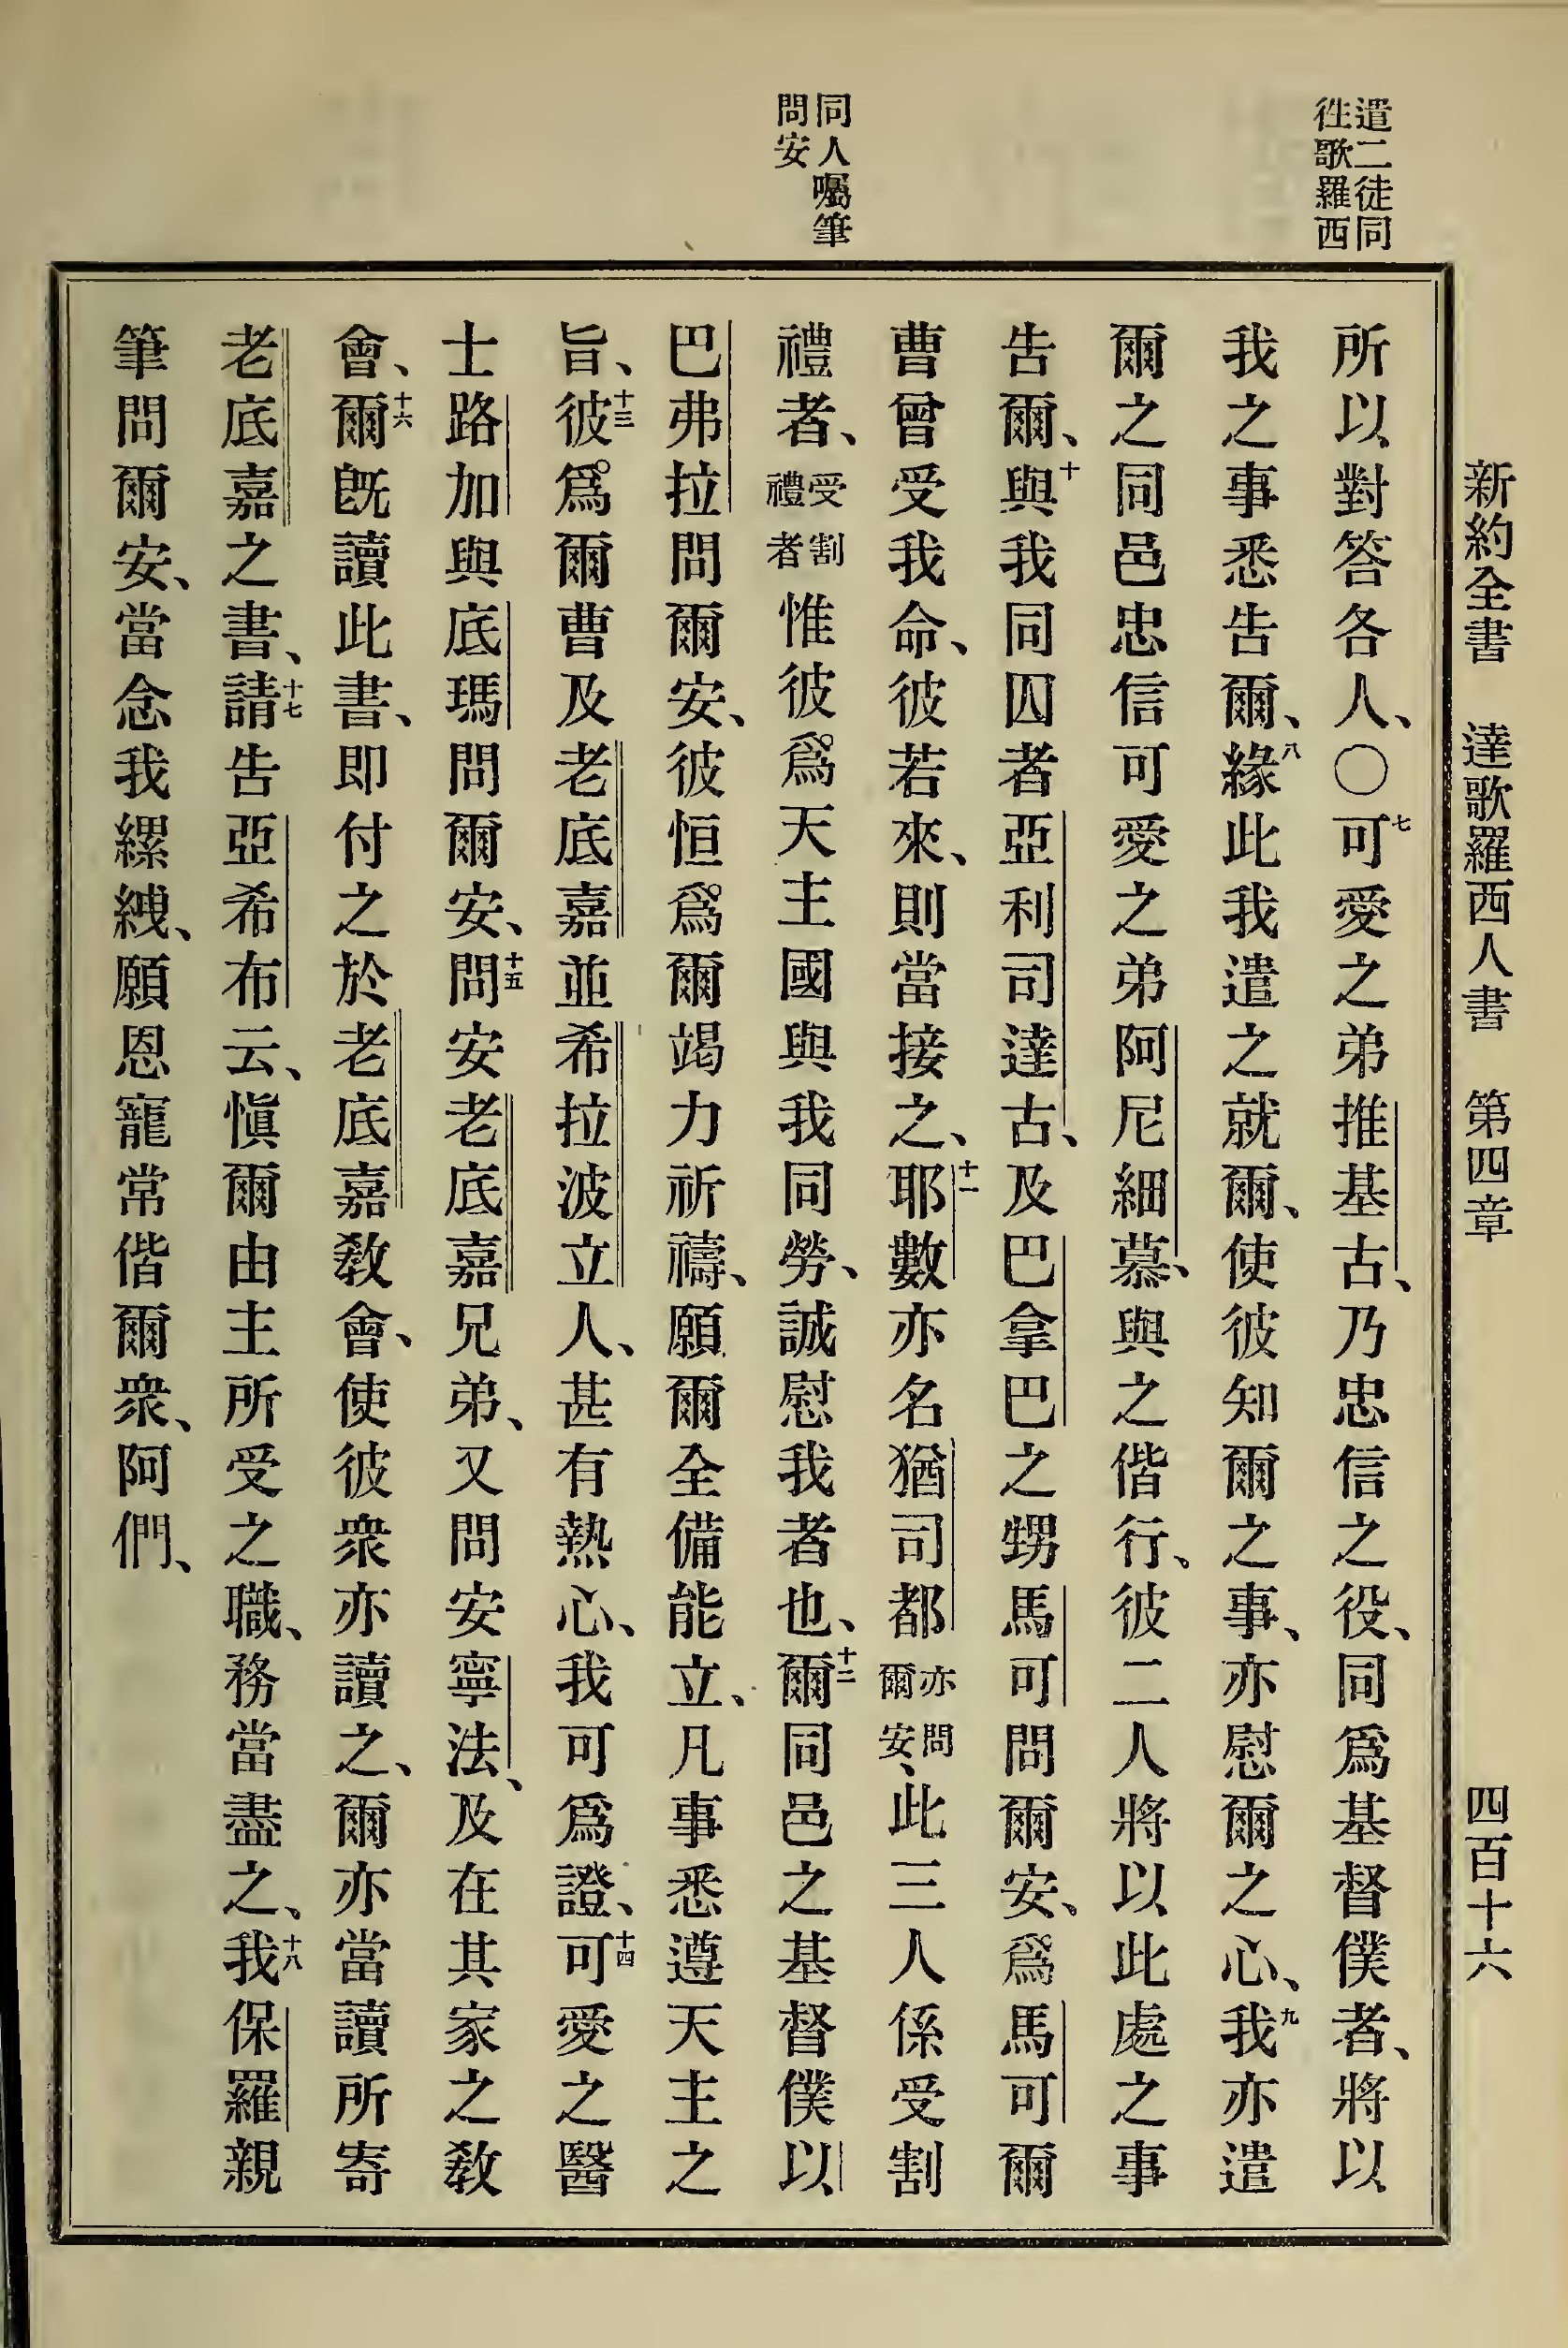 新約全書 達歌羅西人書 第四章 四百十六
遣二徒同
徃歌羅西
同人囑筆
問安
所以對答各人、〇七可愛之弟推基古、乃忠信之役、同爲基督僕者、將以
我之事悉吿爾、八緣此我遣之就爾、使彼知爾之事、亦慰爾之心、九我亦遣
爾之同邑忠信可愛之弟阿尼細慕、與之偕行、彼二人將以此處之事
吿爾、十與我同囚者亞利司達古、及巴拿巴之甥馬可問爾安、爲馬可爾
曹曾受我命、彼若來、則當接之、十一耶數亦名猶司都亦問爾安、此三人係受割
禮者、受割禮者惟彼爲天主國與我同勞、誠慰我者也、十二爾同邑之基督僕以
巴弗拉問爾安、彼恒爲爾竭力祈禱、願爾全備能立、凡事悉遵天主之
旨、十三彼爲爾曹及老底嘉並希拉波立人、甚有熱心、我可爲證、十四可愛之醫
士路加與底瑪問爾安、十五問安老底嘉兄弟、又問安寧法、及在其家之敎
會、十六爾旣讀此書、即付之於老底嘉敎會、使彼衆亦讀之、爾亦當讀所寄
老底嘉之書、十七請吿亞希布云、愼爾由主所受之職、務當盡之、十八我保羅親
筆問爾安、當念我縲絏、願恩寵常偕爾衆、阿們、